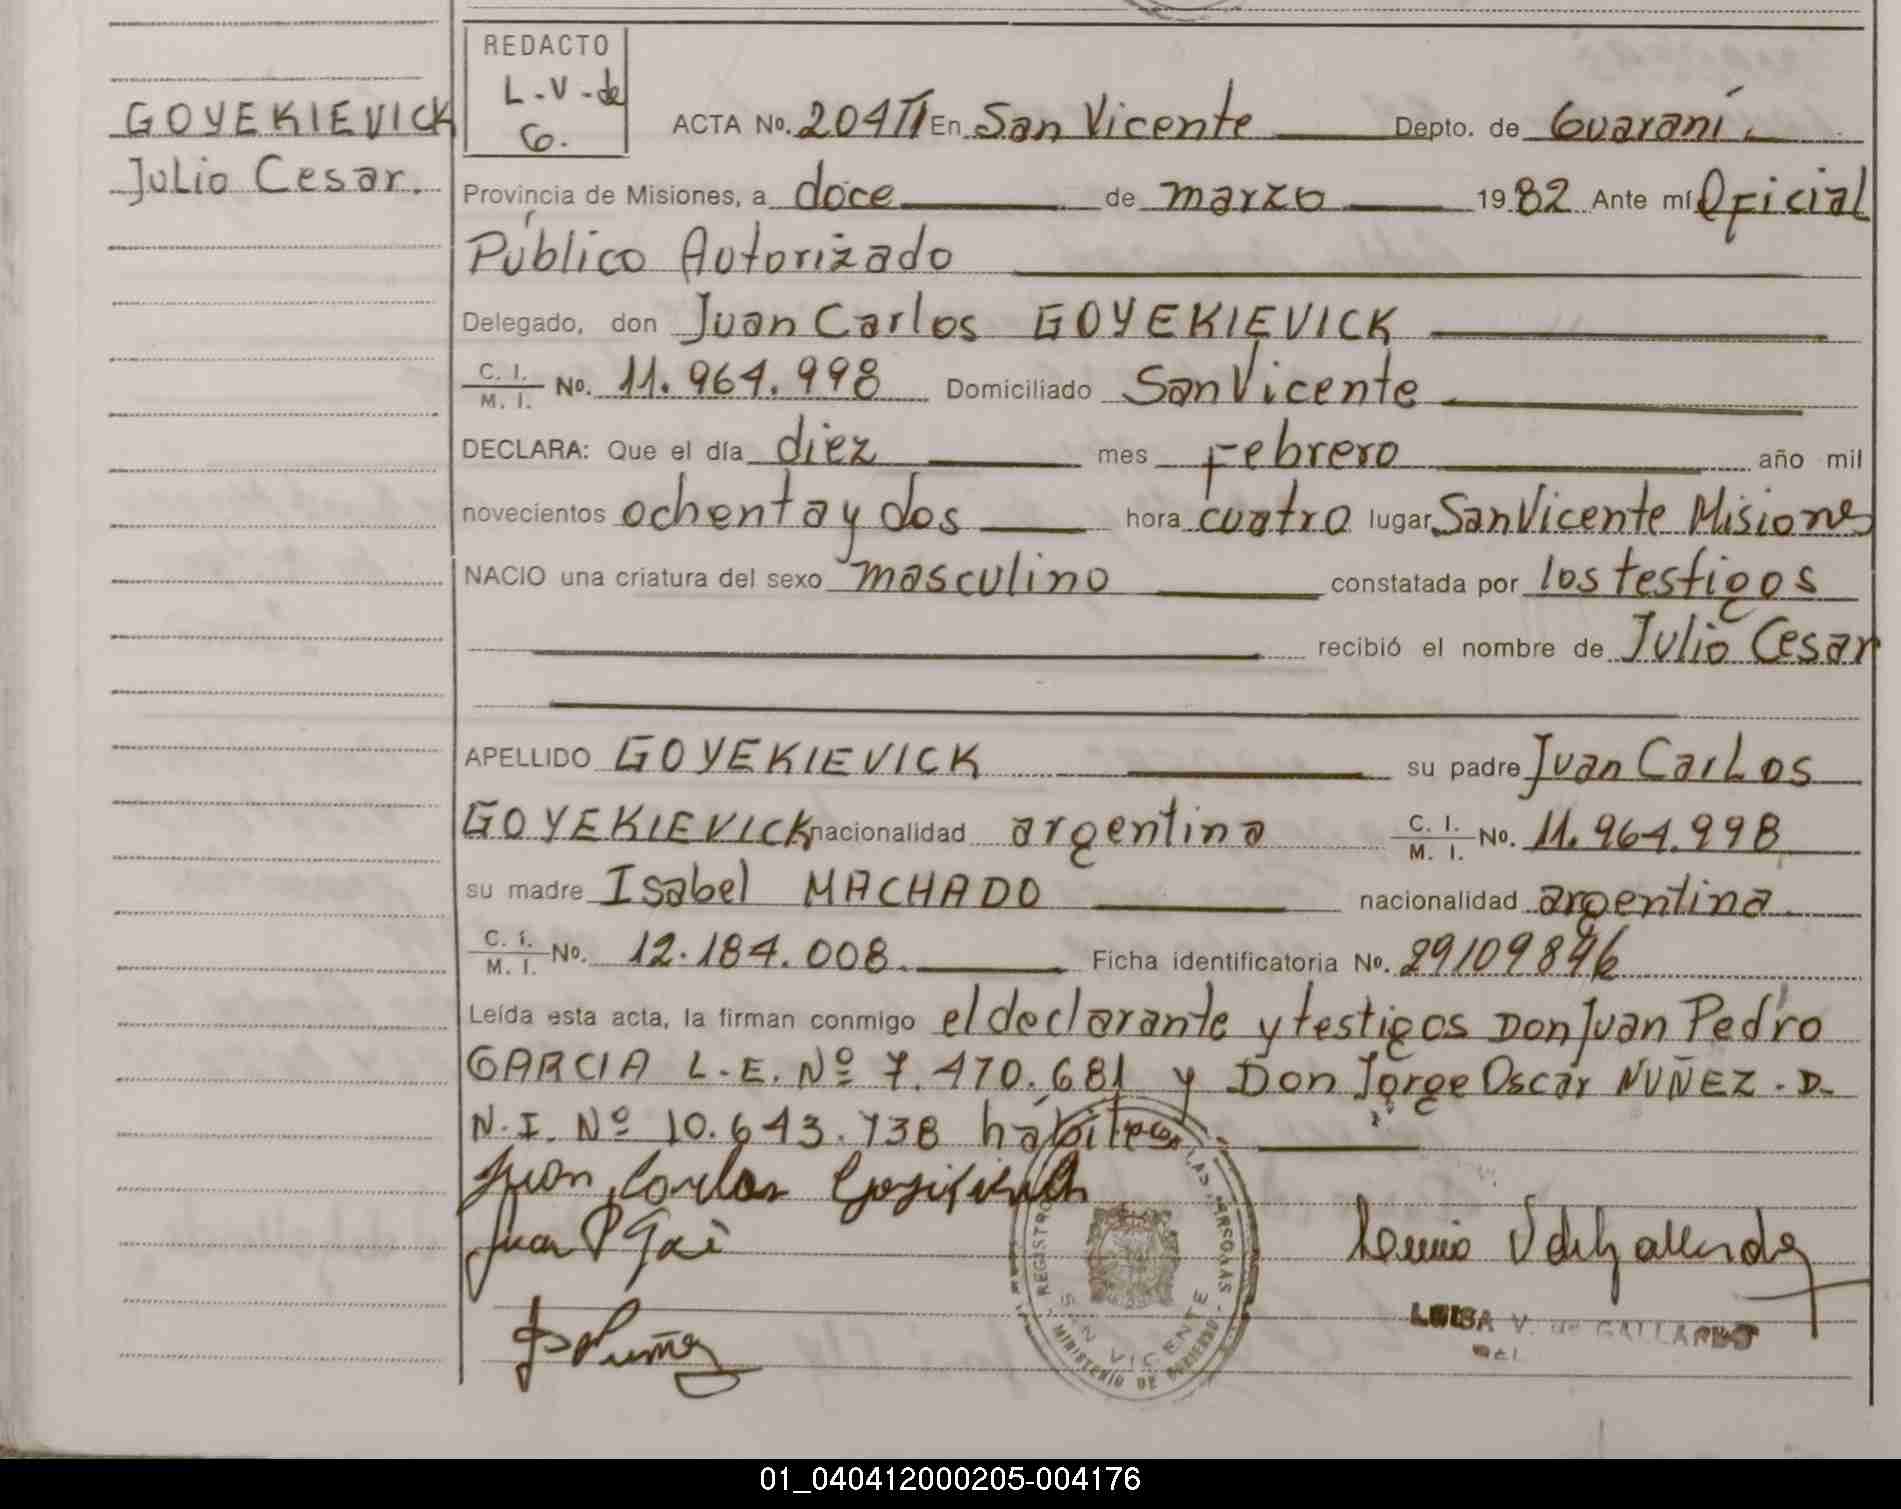 REDACTO
L.V. de
G.
GOYEKIEVICK
Julio Cesar.
ACTA No. 204 TI En San Vicente Depto. de Guaraní.
Provincia de Misiones, a doce de marzo 1982 Ante mí Oficial
Público Autorizado
Delegado, don Juan Carlos GOYEKIEVICK
C. I. / M. I. No. 11.964.998 Domiciliado San Vicente
DECLARA: Que el día diez mes Febrero año mil
novecientos ochenta y dos hora cuatro lugar San Vicente Misiones
NACIO una criatura del sexo masculino constatada por los testigos
recibió el nombre de Julio Cesar
APELLIDO GOYEKIEVICK su padre Juan Carlos
GOYEKIEVICK nacionalidad argentina C. I. / M. I. No. 11.964.998
su madre Isabel MACHADO nacionalidad argentina
C. I. / M. I. No. 12.184.008. Ficha identificatoria No. 29109896
Leída esta acta, la firman conmigo el declarante y testigos Don Juan Pedro
GARCIA L.E. Nº 7.470.681 y Don Jorge Oscar NUÑEZ. D.
N.I. Nº 10.643.738 hábiles
Juan Carlos
Juan P
REGISTRO LAS PERSONAS
SAN VICENTE
MINISTERIO DE GOBIERNO
LUISA V. de GALLARDO
01_040412000205-004176